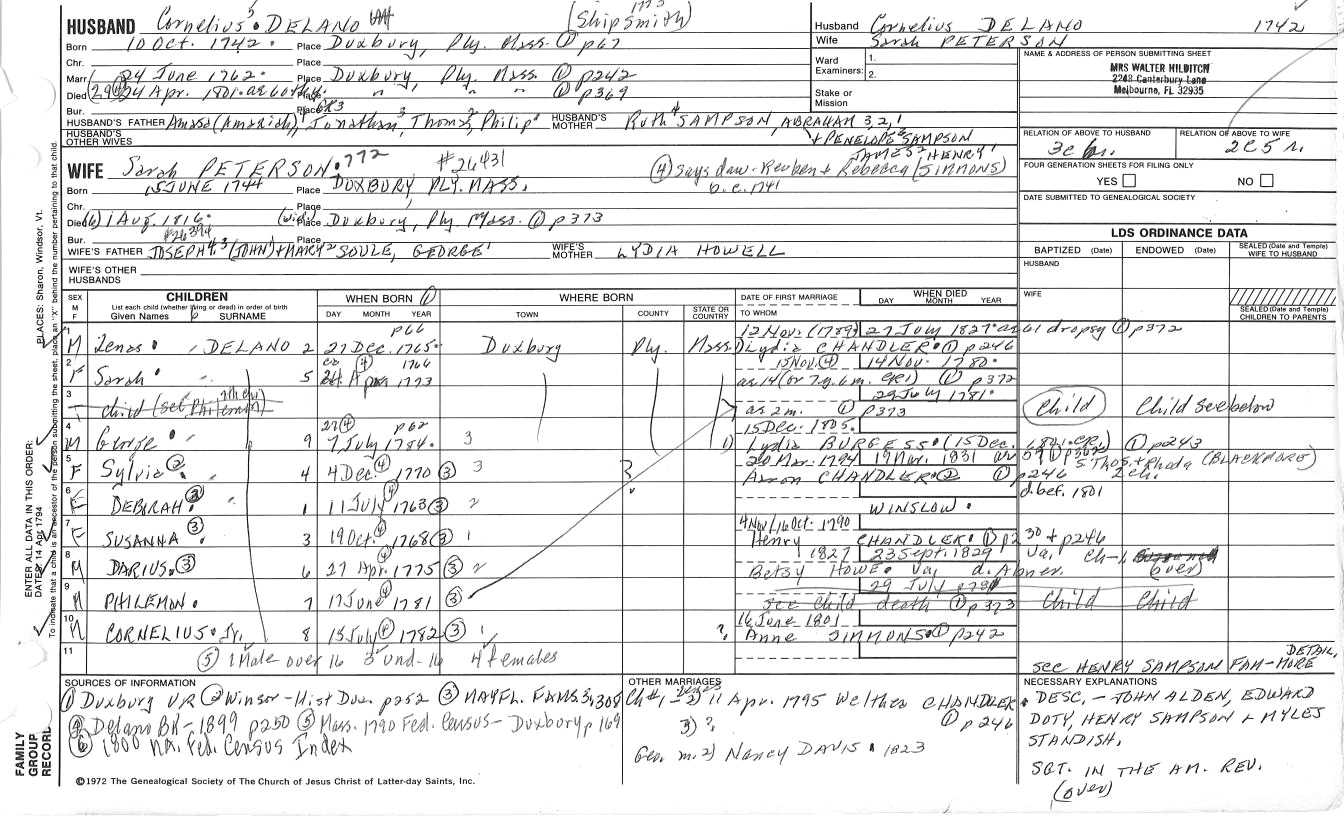 HUSBAND Cornelius⁵ DELANO (Ship Smith)
Born 10 Oct. 1742. Place Duxbury, Ply. Mass. ① p67
Chr. Place
Marr. 24 June 1762. Place Duxbury, Ply. Mass. ① p242
Died 24 Apr. 1801. Place " " ① p369
Bur. Place
HUSBAND'S FATHER Amasa (Amariah), Jonathan³, Thomas², Philip¹ HUSBAND'S MOTHER Ruth⁴ SAMPSON, ABRAHAM 3, 2, 1
HUSBAND'S OTHER WIVES + PENELOPE SAMPSON
JAMES² HENRY¹
Husband Cornelius DELANO 1742
Wife Sarah PETERSON
Ward Examiners: 1.
2.
Stake or Mission
NAME & ADDRESS OF PERSON SUBMITTING SHEET
MRS WALTER HILDITCH
2248 Canterbury Lane
Melbourne, FL 32935
RELATION OF ABOVE TO HUSBAND RELATION OF ABOVE TO WIFE
2C5r.
FOUR GENERATION SHEETS FOR FILING ONLY
YES NO
DATE SUBMITTED TO GENEALOGICAL SOCIETY
WIFE Sarah PETERSON. 772 #26431
④ Says daw. Reuben + Rebecca (SIMMONS)
b. c. 1741
Born 15 JUNE 1744 Place DUXBURY PLY. MASS.
Chr. Place
Died 1 Aug. 1816. (wid.) Place Duxbury, Ply. Mass. ① p373
Bur. #26394 Place
WIFE'S FATHER JOSEPH⁴ ³(JOHN²) + MARY² SOULE, GEORGE¹ WIFE'S MOTHER LYDIA HOWELL
WIFE'S OTHER HUSBANDS
LDS ORDINANCE DATA
BAPTIZED (Date) ENDOWED (Date) SEALED (Date and Temple) WIFE TO HUSBAND
HUSBAND
WIFE
SEALED (Date and Temple) CHILDREN TO PARENTS
SEX M F CHILDREN List each child (whether living or dead) in order of birth Given Names SURNAME
WHEN BORN ① DAY MONTH YEAR
WHERE BORN TOWN COUNTY STATE OR COUNTRY
DATE OF FIRST MARRIAGE TO WHOM
WHEN DIED DAY MONTH YEAR
p66 12 Nov. (1789) 27 July 1827 61 dropsy ① p372
1 M Zenas. DELANO 2 27 Dec. 1765. Duxbury Ply. Mass. Lydia CHANDLER. ① p246
1766 15 Nov. ④ 14 Nov. 1780.
2 F Sarah. 5 1773 as 14 (or 7y. 6m. GR1) ① p372
29 July 1781.
3 child as 2m. ① p373 Child Child see below
27 ④ p62 15 Dec. 1805.
4 M George 9 7 July 1784. 3 1) Lydia BURGESS. (15 Dec. ① p243
5 F Sylvia ② 4 4 Dec. ④ 1770 ③ 3 20 Mar. 1794 19 Mar. 1831
Aaron CHANDLER ② ① p246 2 ch.
Thos. + Rhoda (BLACKMORE)
6 F DEBORAH. ③ 1 11 July ④ 1763 ③ 2 WINSLOW. d. bef. 1801
4 Nov/16 Oct. 1790
7 F SUSANNA ③ 3 19 Oct. ④ 1768 ③ 1 Henry CHANDLER. ① + p246
1827 23 Sept. 1829 Va.
8 M DARIUS. ③ 6 27 Apr. 1775 ③ 2 Betsy HOWE. Va. d. Abner. (over)
29 July
9 M PHILEMON. 7 17 June ④ 1781 ③ See child death ① p373 Child Child
16 June 1801
10 M CORNELIUS. Jr. 8 15 July ④ 1782 ③ 1 ? Anne SIMMONS. ① p242
11 ⑤ 1 Male over 16 3 und-16 4 females
SEE HENRY SAMPSON FAM- MORE DETAIL
SOURCES OF INFORMATION
① Duxbury VR ② Winsor-Hist Dux. p252 ③ MAYFL. FAMS.
④ Delano BK - 1899 p250 ⑤ Mass. 1790 Fed. Census - Duxbury p 169
⑥ 1800 Fed. Census Index
OTHER MARRIAGES
Ch#1 - 2) 11 Apr. 1795 Welthea CHANDLER.
① p246
3) ?
Geo. m. 2) Nancy DAVIS. 1823
NECESSARY EXPLANATIONS
DESC. - JOHN ALDEN, EDWARD
DOTY, HENRY SAMPSON + MYLES
STANDISH.
SGT. IN THE AM. REV.
(over)
©1972 The Genealogical Society of The Church of Jesus Christ of Latter-day Saints, Inc.
FAMILY GROUP RECORD
ENTER ALL DATA IN THIS ORDER:
DATES: 14 Apr 1794
PLACES: Sharon, Windsor, Vt.
To indicate that a child is an ancestor of the person submitting the sheet, place an "X" behind the number pertaining to that child.